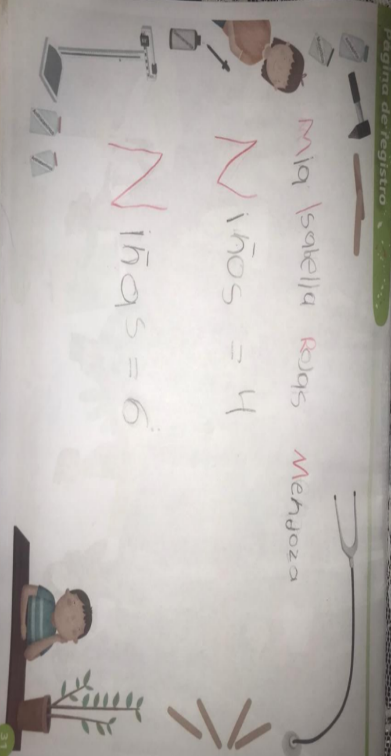 Página de registro
Mia Isabella Rojas Mendoza
Niños = 4
Niñas = 6
31